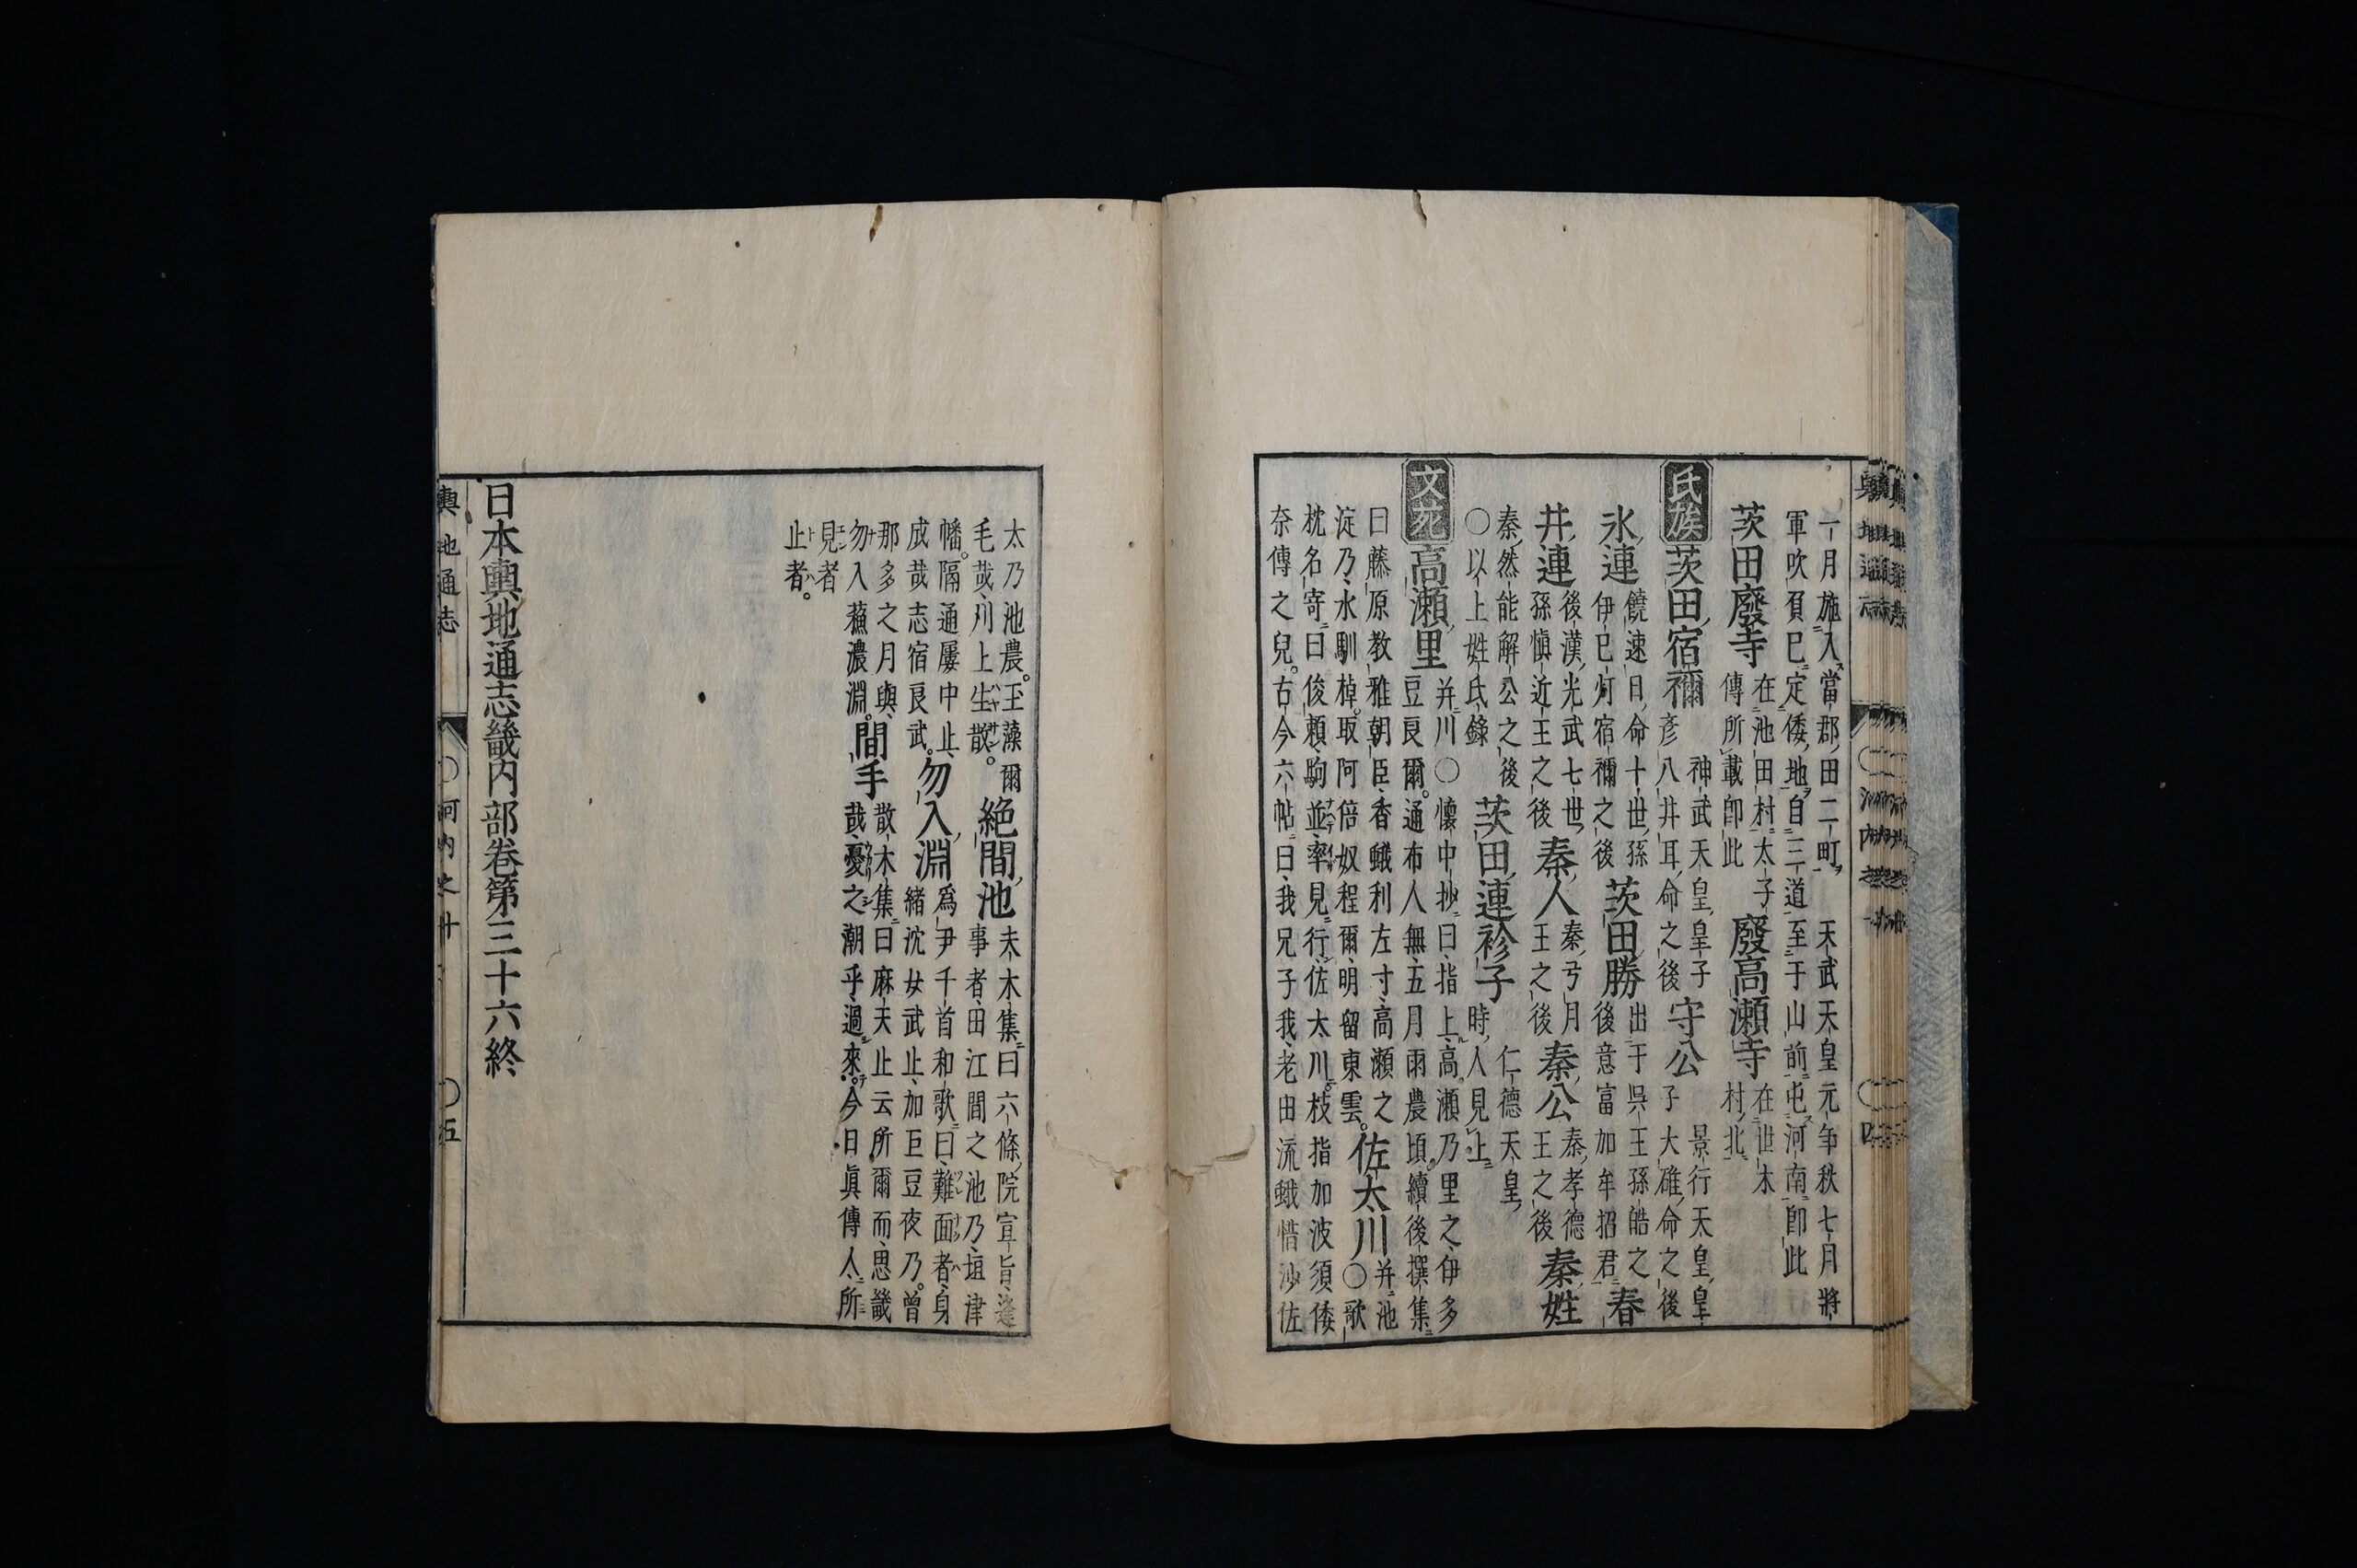 一月施入當郡田二町 天武天皇元年秋七月將
軍吹負已定倭地自三道至于山前屯河南即此
茨田廢寺 在池田村太子傳所載即此 廢高瀬寺 在世木村北
氏族 茨田宿禰 神武天皇皇子彦八井耳命之後 守公 景行天皇皇子大碓命之後
氷連 饒速日命十世孫伊己灯宿禰之後 茨田勝 出于呉王孫皓之後意富加牟招君 春
井連 後漢光武七世孫慎近王之後 秦人 秦弓月王之後 秦公 秦孝德王之後 秦姓
秦然能解公之後 茨田連袗子 仁德天皇時人見上
○以上姓氏錄
文苑 高瀬里 并川○懷中抄曰指上高瀬乃里之伊多
豆良爾通布人無五月雨農頃續後撰集
曰藤原教雅朝臣香蛾利左寸高瀬之
淀乃水馴棹取阿倍奴程爾明留東雲 佐太川 并池○歌
枕名寄曰俊頼駒並率見行佐太川枝指加波須倭
奈傳之兒古今六帖曰我兄子我老田流蛾惜沙佐
輿地通志 ○河内之 ○四
太乃池農玉藻爾
毛哉川上生散 絶間池 夫木集曰六條院宣旨逢
事者田江間之池乃垣津
幡隔通屢中止 勿入淵 爲尹千首和歌曰難面者身
成哉志宿良武 緒沈女武止加巨豆夜乃曾
那多之月與 散木集曰麻天止云所爾而思畿
勿入蘓濃淵 間手 哉憂之潮乎過來今日眞傳人所
見者
止者
日本輿地通志畿内部巻第三十六終
輿地通志 ○河内之廿 ○五